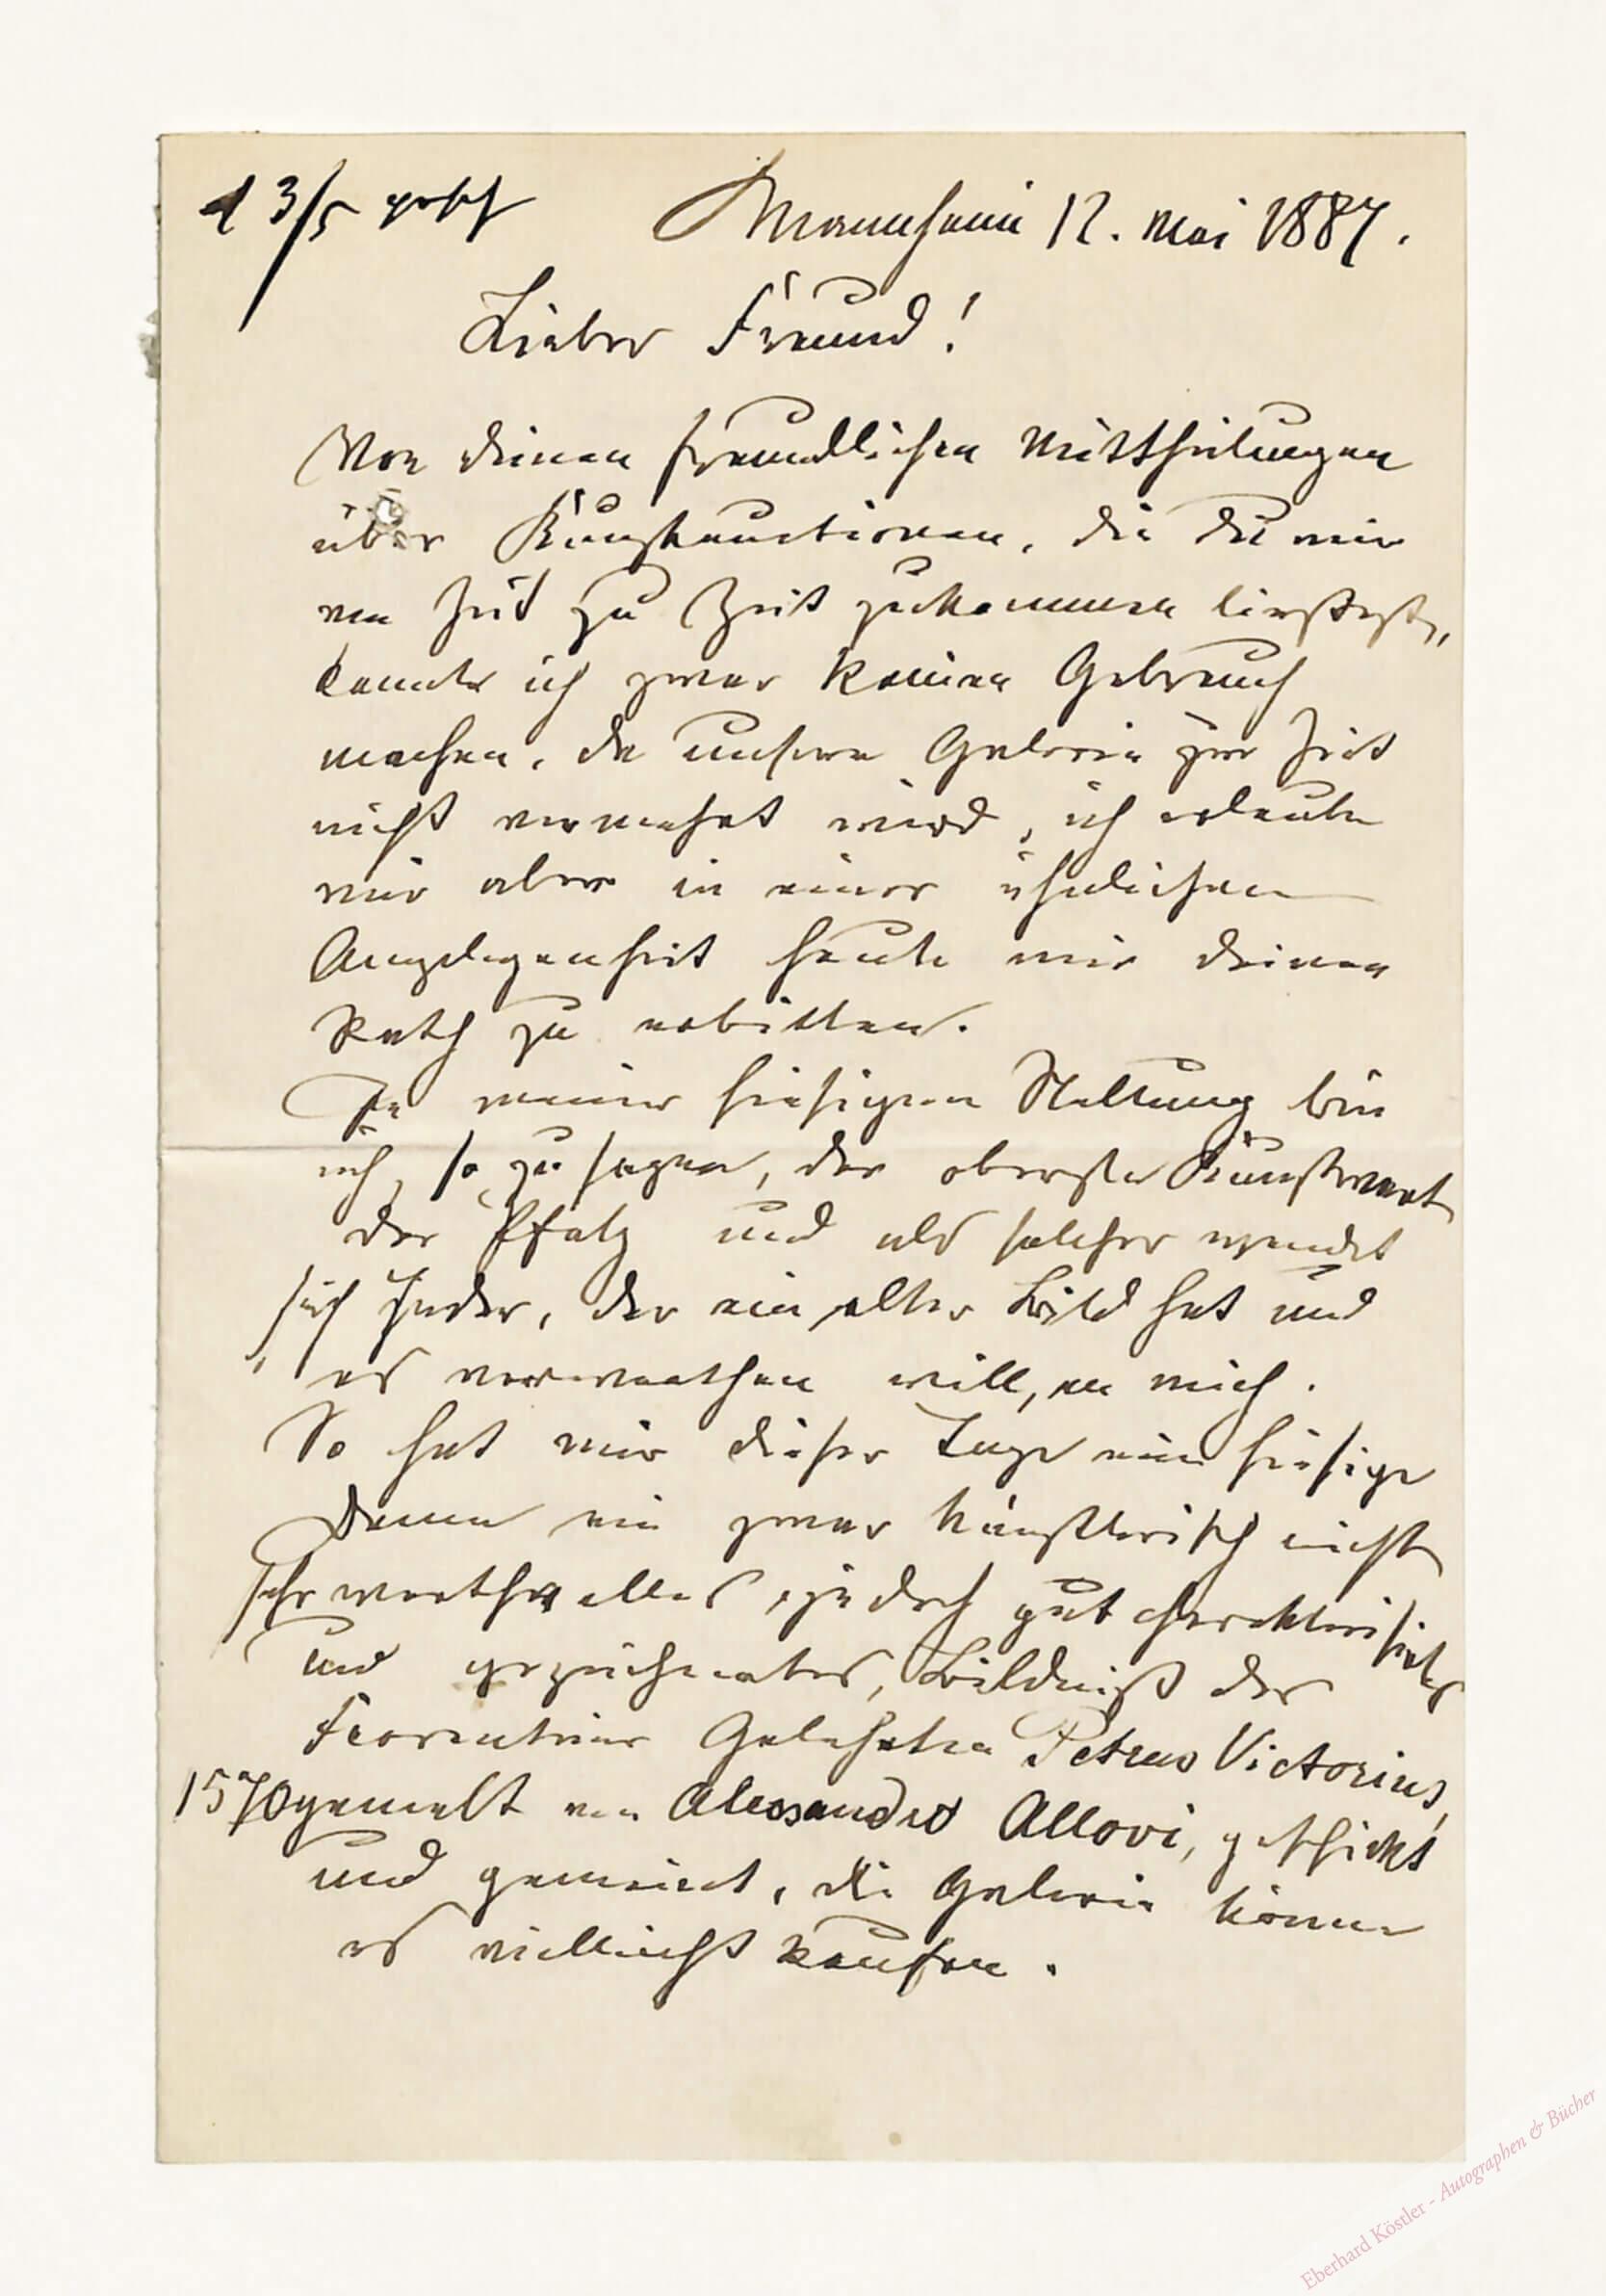 13/5
Mannheim 12. Mai 1887.
Lieber Freund!
Von deinen freundlichen Mittheilungen
über Kunstauctionen, die Du mir
von Zeit zu Zeit zukommen ließest,
konnte ich zwar keinen Gebrauch
machen, da unsere Galerie zur Zeit
nicht vermehrt wird, ich erlaube
mir aber in einer ähnlichen
Angelegenheit heute mir deinen
Rath zu erbitten.
In meiner hiesigen Stellung bin
ich, so zu sagen, der oberste Kunstwart
der Pfalz und als solcher wendet
sich Jeder, der ein altes Bild hat und
es verwerthen will, an mich.
So hat mir dieser Tage eine hiesige
Dame ein zwar künstlerisch nicht
sehr werthvolles, jedoch gut charakterisirtes
und gezeichnetes, Bildniß des
Florentiner Gelehrten Petrus Victorius,
1570 gemalt von Alessandro Allori, geschickt
und gemeint, die Galerie könne
es vielleicht kaufen.
Eberhard Köstler - Autographen & Bücher